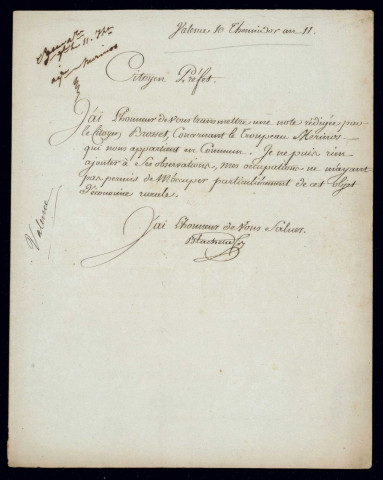 Valence 10 Thermidor an 11.
Citoyen Préfet.
J'ai l'honneur de vous transmettre une note rédigée par
le citoyen Brosset, Concernant le troupeau Merinos
qui nous appartient en Commun. Je ne puis rien
ajouter à ses observations, mes occupations ne m'ayant
pas permis de M'occuper particulièrement de cet objet
d'économie rurale.
J'ai l'honneur de Vous Saluer.
Valence